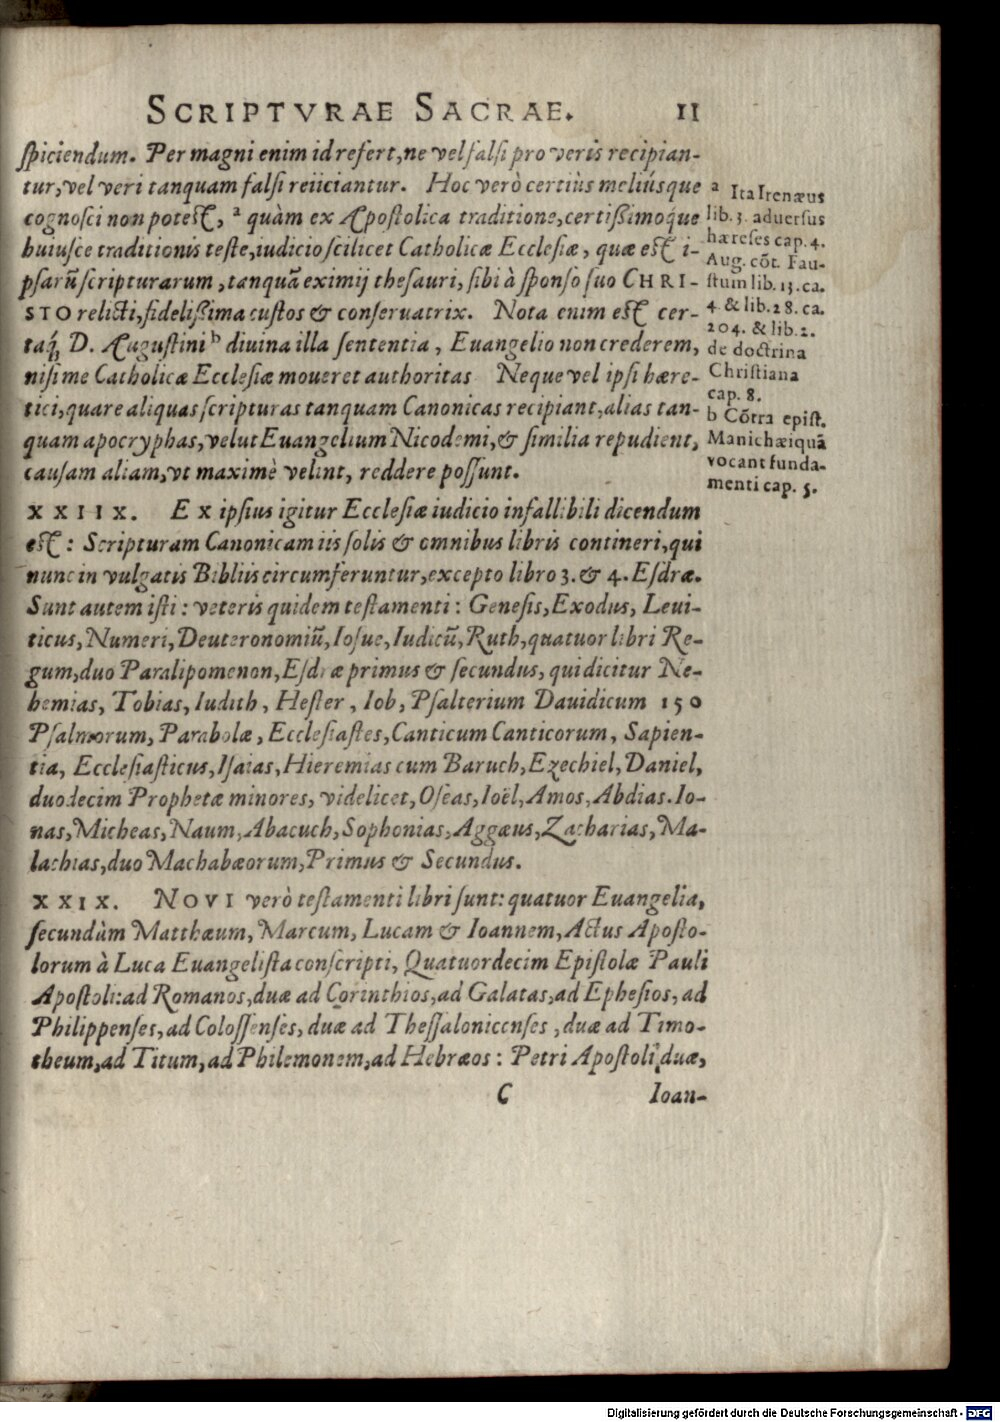 SCRIPTVRAE SACRAE. 11
ſpiciendum. Per magni enim id refert, ne vel falſi pro veris recipian-
tur, vel veri tanquam falſi reiiciantur. Hoc verò certiùs meliúsque
cognoſci non poteſt, ᵃ quàm ex Apoſtolica traditione, certißimoq́ue
huiuſce traditionis teſte, iudicio ſcilicet Catholicæ Eccleſiæ, quæ eſt i-
pſarũ ſcripturarum, tanquã eximij theſauri, ſibi à ſponſo ſuo CHRI-
STO relicti, fidelißima custos & conſeruatrix. Nota enim eſt cer-
taq́; D. Auguſtini ᵇ diuina illa ſententia, Euangelio non crederem,
niſi me Catholicæ Eccleſiæ moueret authoritas Neque vel ipſi hære-
tici, quare aliquas ſcripturas tanquam Canonicas recipiant, alias tan-
quam apocryphas, velut Euangelium Nicodemi, & ſimilia repudient,
cauſam aliam, vt maximè velint, reddere poſſunt.
XXIIX. EX ipſius igitur Eccleſiæ iudicio infallibili dicendum
eſt: Scripturam Canonicam iis ſolis & omnibus libris contineri, qui
nunc in vulgatis Bibliis circumferuntur, excepto libro 3. & 4. Eſdræ.
Sunt autem iſti: veteris quidem teſtamenti: Geneſis, Exodus, Leui-
ticus, Numeri, Deuteronomiũ, Ioſue, Iudicũ, Ruth, quatuor libri Re-
gum, duo Paralipomenon, Eſdræ primus & ſecundus, qui dicitur Ne-
hemias, Tobias, Iudith, Heſter, Iob, Pſalterium Dauidicum 150
Pſalmorum, Parabolæ, Eccleſiaſtes, Canticum Canticorum, Sapien-
tia, Eccleſiaſticus, Iſaias, Hieremias cum Baruch, Ezechiel, Daniel,
duodecim Prophetæ minores, videlicet, Oſeas, Ioël, Amos, Abdias. Io-
nas, Micheas, Naum, Abacuch, Sophonias, Aggæus, Zacharias, Ma-
lachias, duo Machabæorum, Primus & Secundus.
XXIX. NOVI verò teſtamenti libri ſunt: quatuor Euangelia,
ſecundùm Matthæum, Marcum, Lucam & Ioannem, Actus Apoſto-
lorum à Luca Euangeliſta conſcripti, Quatuordecim Epiſtolæ Pauli
Apoſtoli: ad Romanos, duæ ad Corinthios, ad Galatas, ad Epheſios, ad
Philippenſes, ad Coloſſenſes, duæ ad Theſſalonicenſes, duæ ad Timo-
theum, ad Titum, ad Philemonem, ad Hebræos: Petri Apoſtoli duæ,
C Ioan-
a Ita Irenæus
lib. 3. aduerſus
hæreſes cap. 4.
Aug. cõt. Fau-
ſtum lib. 13. ca.
4 & lib. 28. ca.
204. & lib. 2.
de doctrina
Chriſtiana
cap. 8.
b Cõtra epiſt.
Manichæi quã
vocant funda-
menti cap. 5.
Digitalisierung gefördert durch die Deutsche Forschungsgemeinschaft - DFG